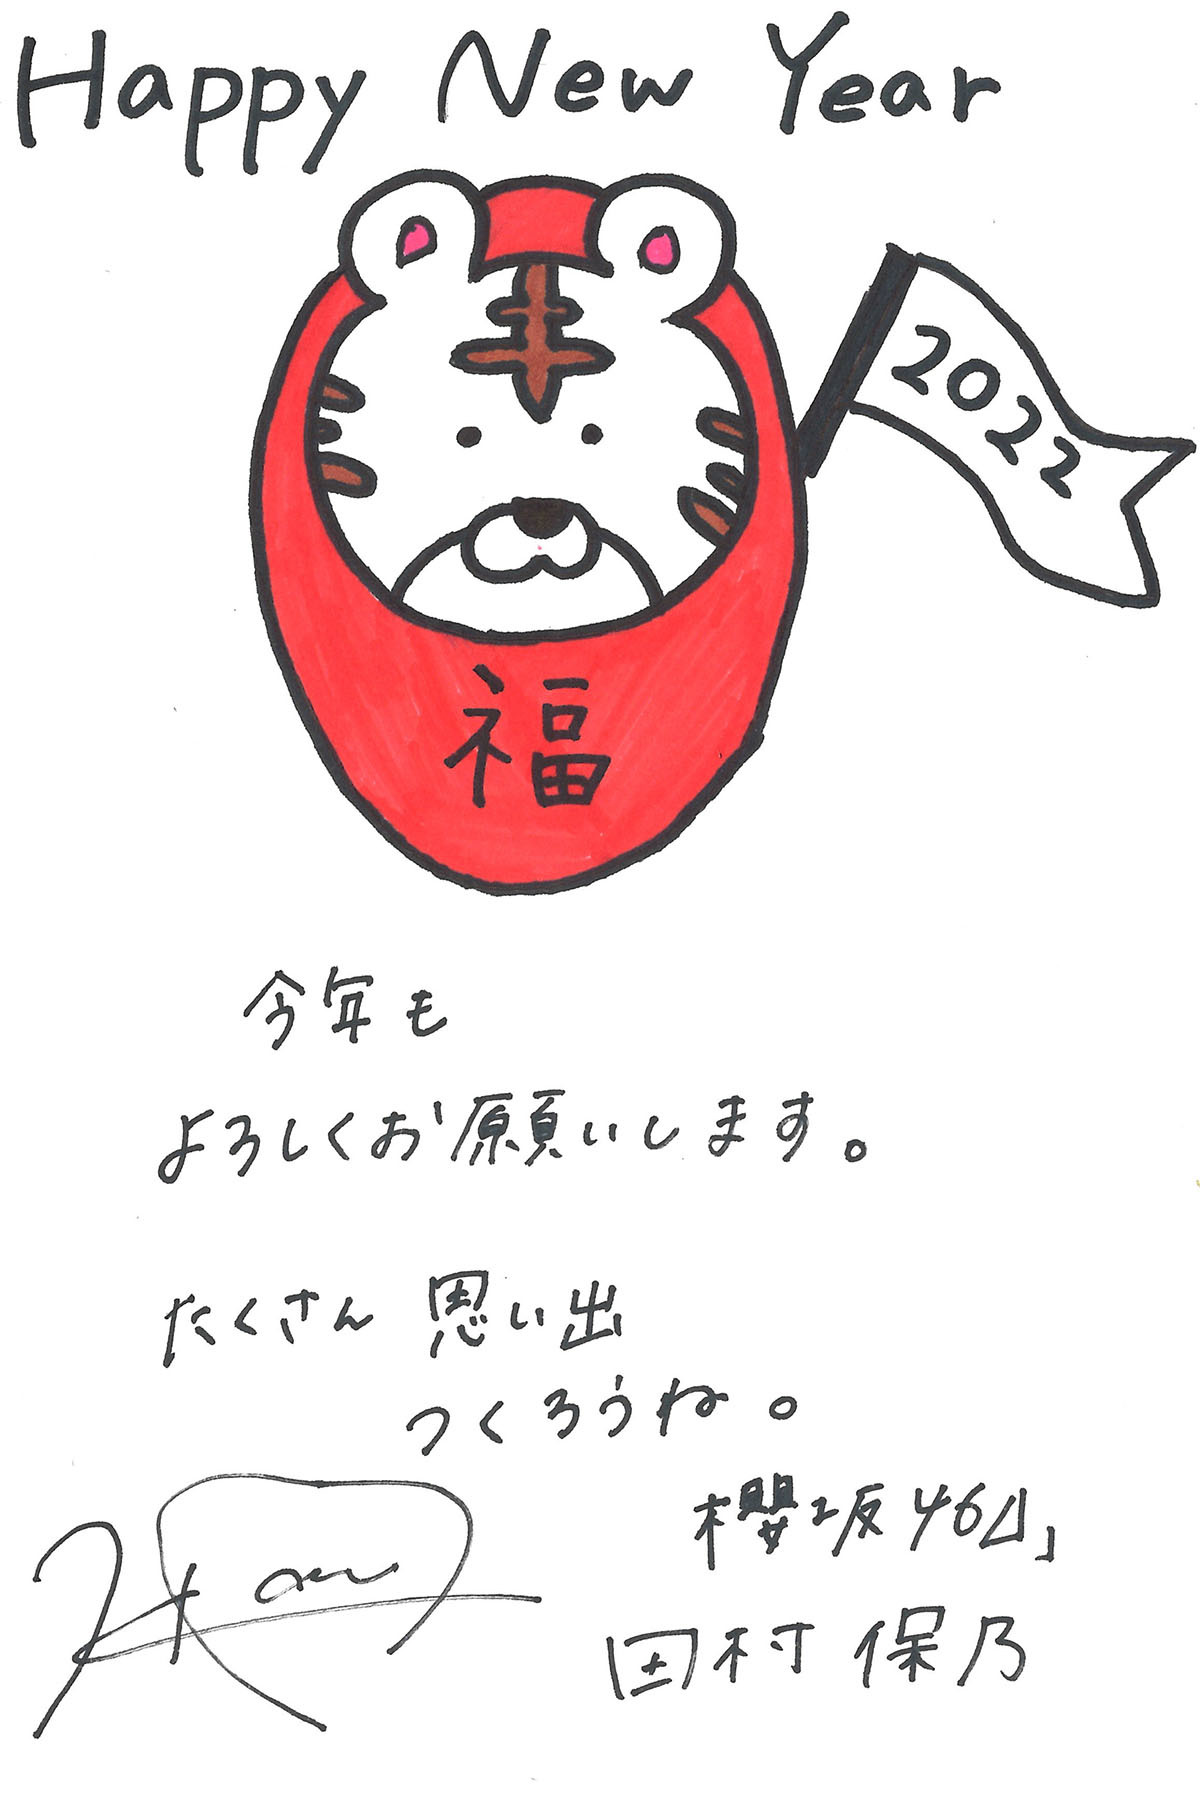 Happy New Year
2022
福
今年も
よろしくお願いします。
たくさん 思い出
つくろうね。
櫻坂46
田村 保乃